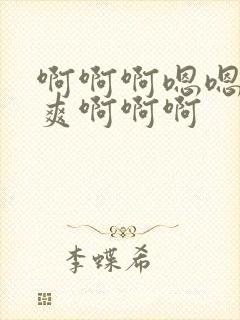 啊啊啊嗯嗯
爽啊啊啊
李蝶希